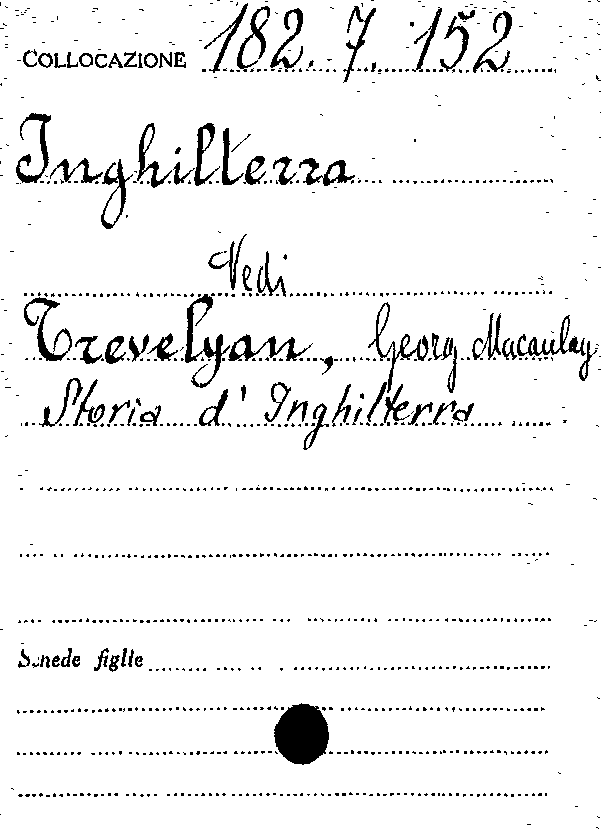 COLLOCAZIONE 182. 7. 152
Inghilterra
Vedi
Trevelyan, Georg Macaulay
Storia d' Inghilterra
Schede figlie